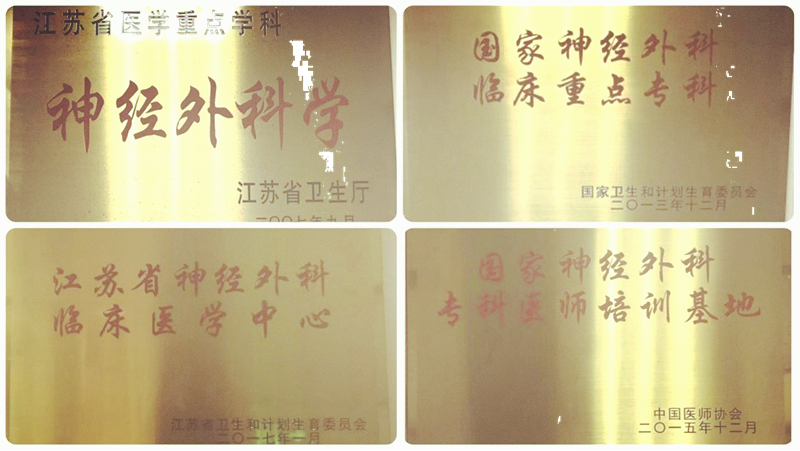 江苏省医学重点学科
神经外科学
江苏省卫生厅
二〇〇七年九月
国家神经外科
临床重点专科
国家卫生和计划生育委员会
二〇一三年十二月
江苏省神经外科
临床医学中心
江苏省卫生和计划生育委员会
二〇一七年一月
国家神经外科
专科医师培训基地
中国医师协会
二〇一五年十二月